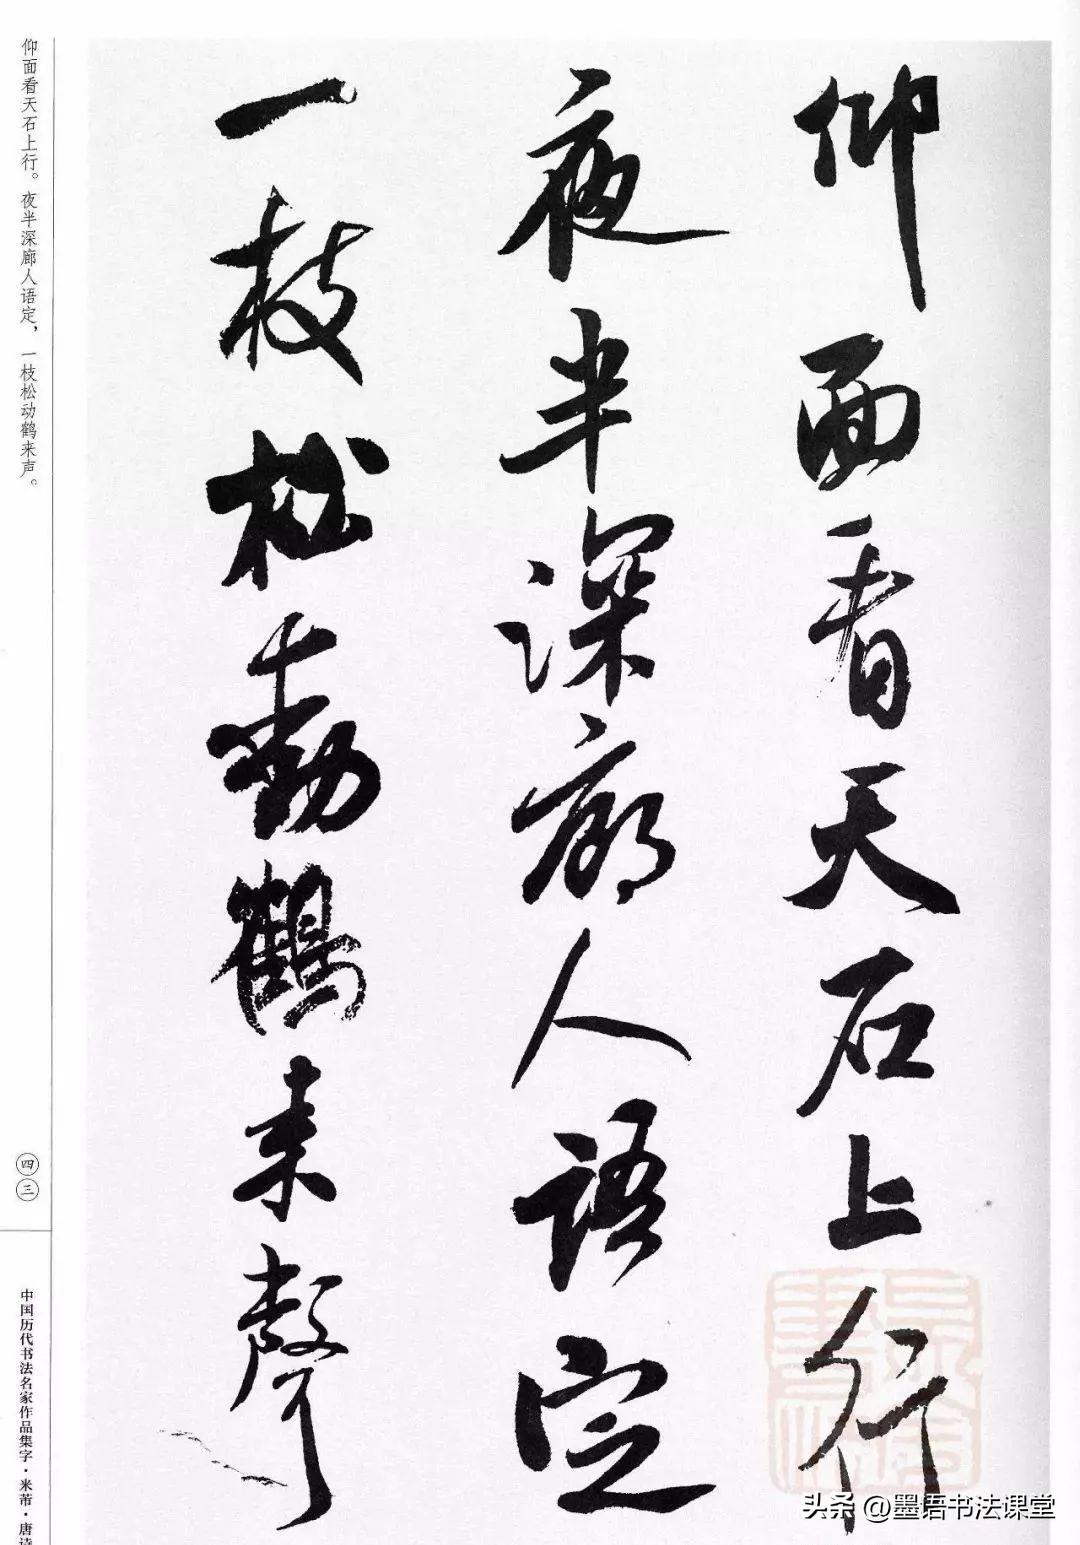 仰面看天石上行
夜半深廊人語定
一枝松動鶴来聲
仰面看天石上行。夜半深廊人语定，一枝松动鹤来声。
四三
中国历代书法名家作品集字·米芾·唐诗
头条 @墨语书法课堂